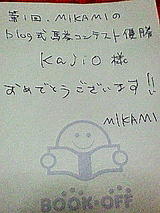 第1回.MIKAMIの
blog式馬券コンテスト優勝
Kajio 様
おめでとうございます!!
MIKAMI
BOOK・OFF